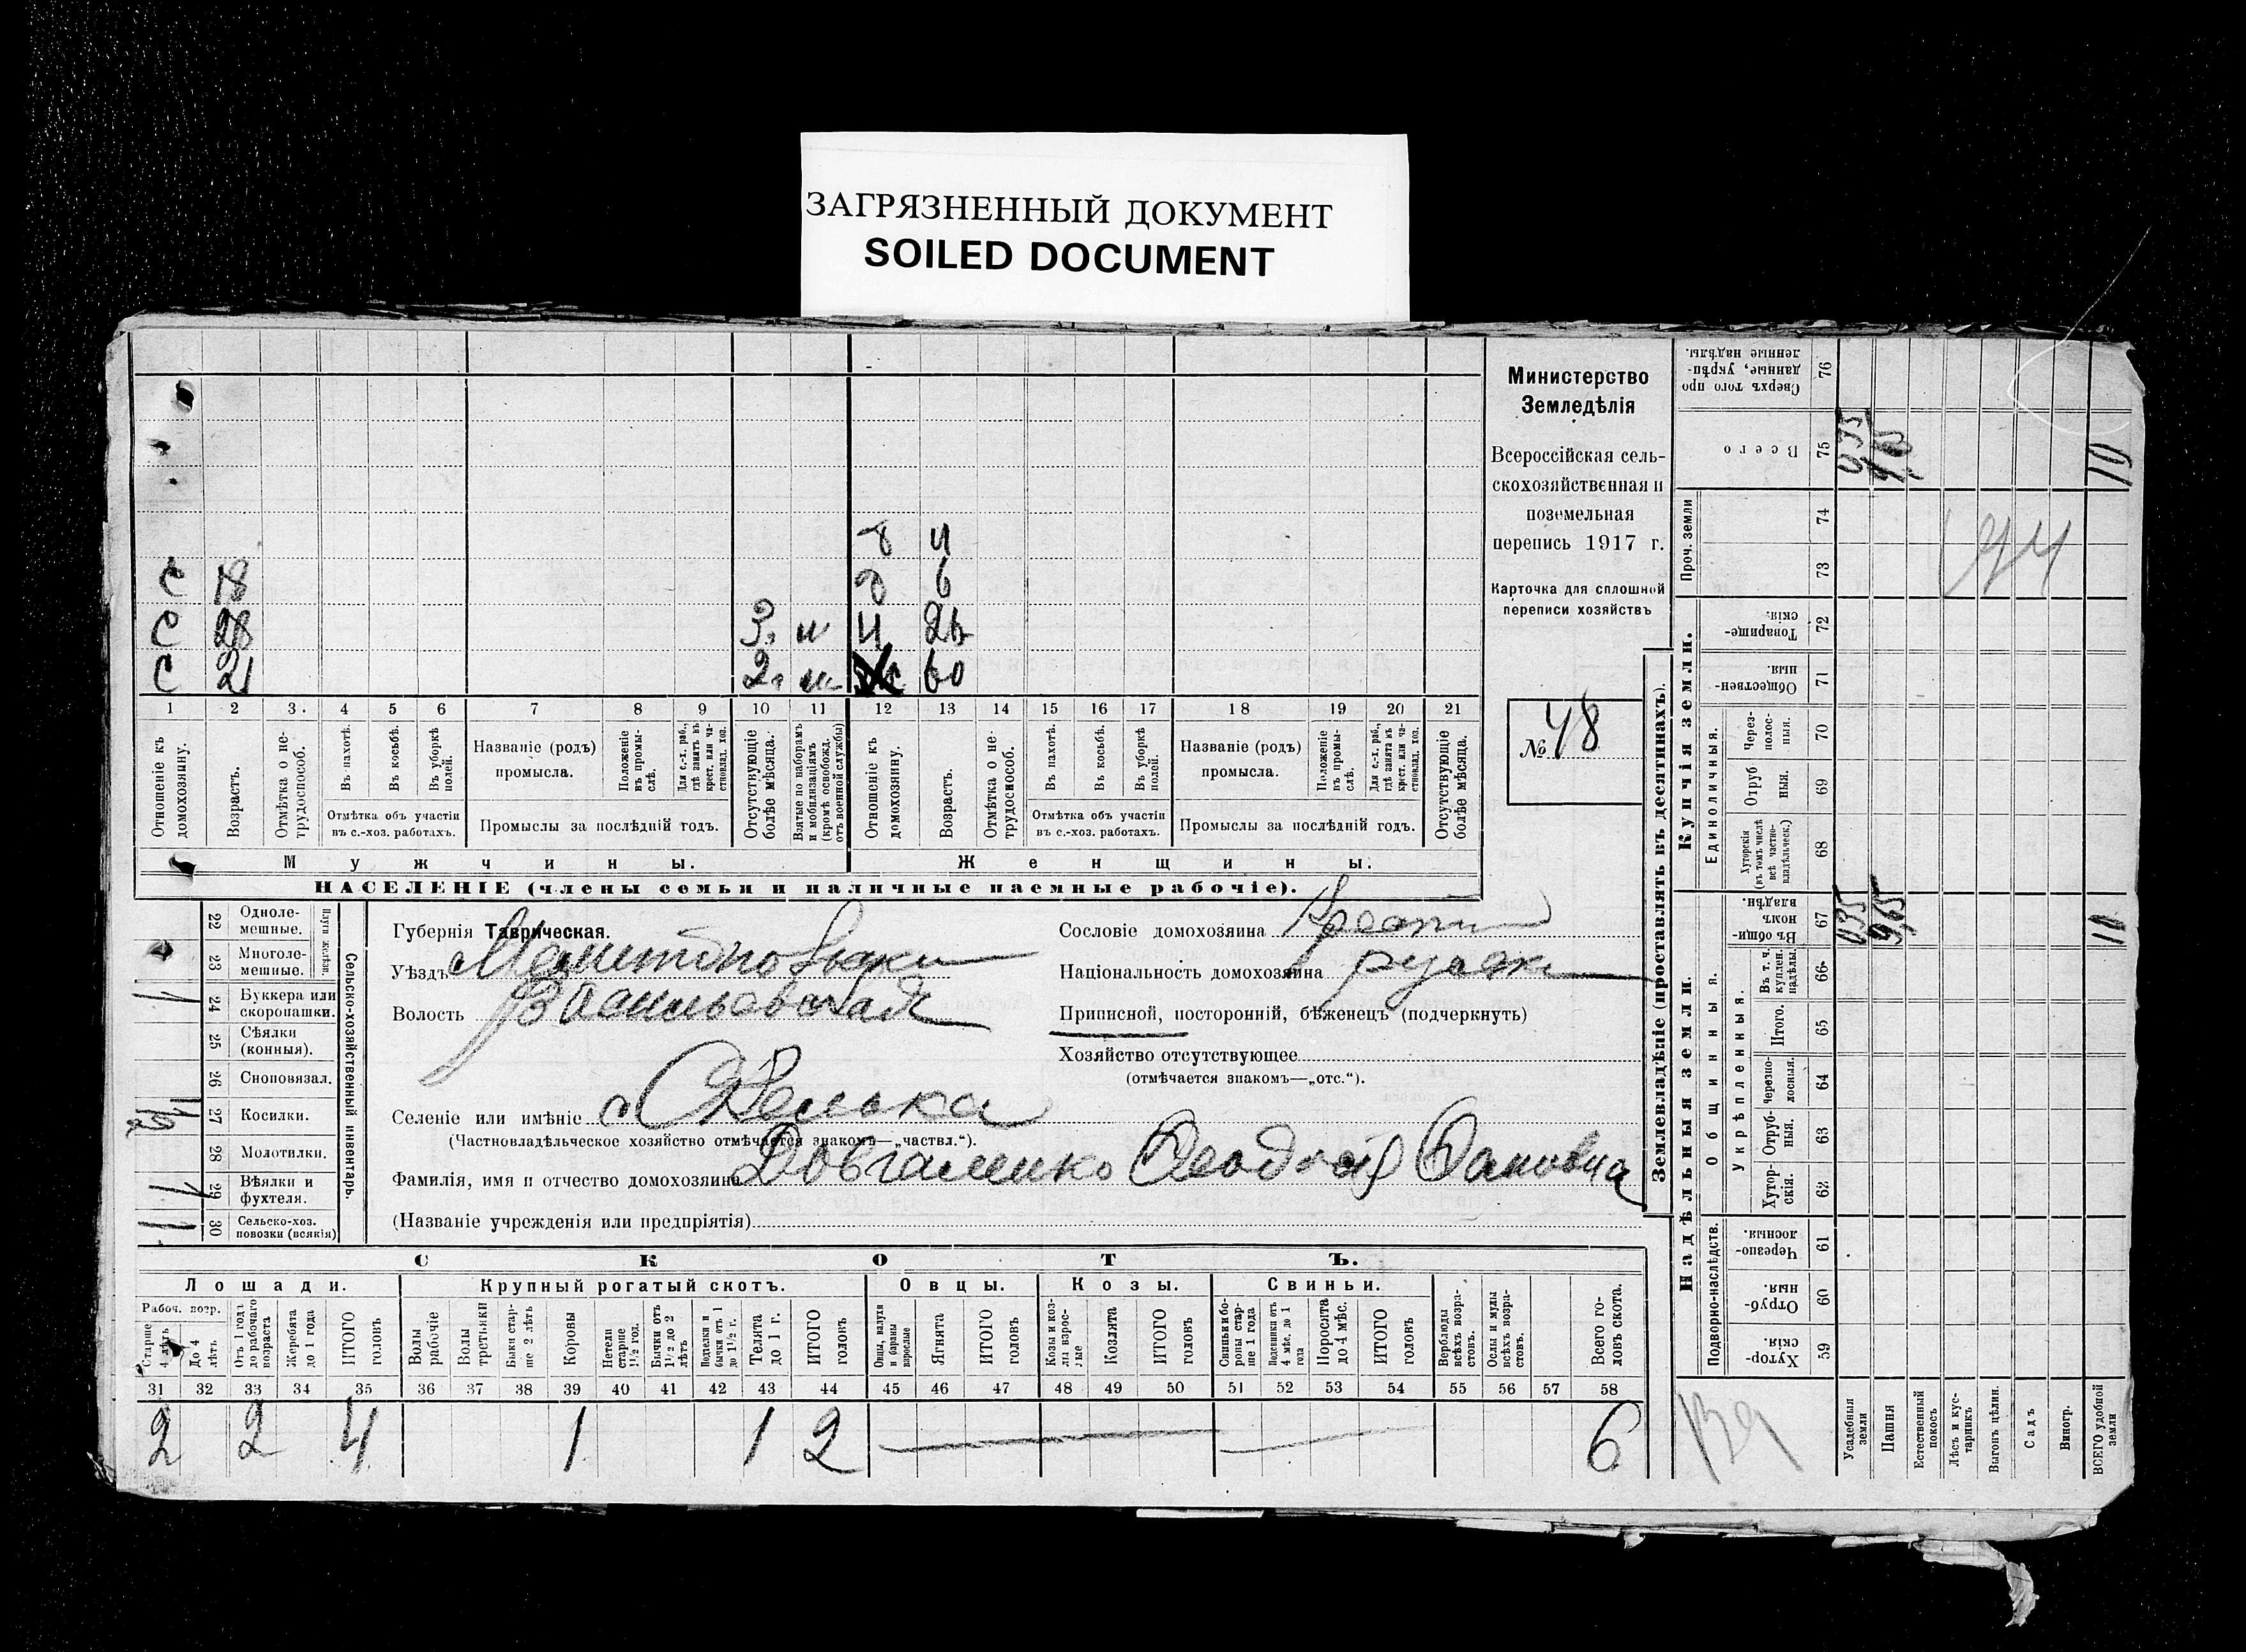 ЗАГРЯЗНЕННЫЙ ДОКУМЕНТ
SOILED DOCUMENT
Министерство
Земледѣлія
Всероссійская сель-
скохозяйственная и
поземельная
перепись 1917 г.
Карточка для сплошной
переписи хозяйствъ
№ 48
4
С 18 6
С 28 3 26
С 21 2 60
1 2 3. 4 5 6 7 8 9 10 11 12 13 14 15 16 17 18 19 20 21
Отношеніе къ домохозяину.
Возрастъ.
Отмѣтка о не-трудоспособ.
Въ пахотѣ.
Въ косьбѣ.
Въ уборкѣ полей.
Отмѣтка объ участіи
въ с.-хоз. работахъ.
Названіе (родъ)
промысла.
Положеніе въ промы-слѣ.
Для с.-х. раб., гдѣ занятъ въ крест. или ча-стновлад. хоз.
Промыслы за послѣдній годъ.
Отсутствующіе болѣе мѣсяца.
Взятые по наборамъ и мобилизаціямъ (кромѣ освобожд. отъ военной службы)
Отношеніе къ домохозяину.
Возрастъ.
Отмѣтка о не-трудоспособ.
Въ пахотѣ.
Въ косьбѣ.
Въ уборкѣ полей.
Отмѣтка объ участіи
въ с.-хоз. работахъ.
Названіе (родъ)
промысла.
Положеніе въ промы-слѣ.
Для с.-х. раб., гдѣ занята въ крест. или ча-стновлад. хоз.
Промыслы за послѣдній годъ.
Отсутствующіе болѣе мѣсяца.
Мужчины. Женщины.
НАСЕЛЕНІЕ (члены семьи и наличные наемные рабочіе).
Сельско-хозяйственный инвентарь
22 Одноле-мешные.
23 Многоле-мешные.
24 Буккера или скоропашки.
25 Сѣялки (конныя).
26 Сноповязал.
27 Косилки.
28 Молотилки.
29 Вѣялки и фухтеля.
30 Сельско-хоз. повозки (всякія)
Губернія Таврическая.
Уѣздъ
Волость Васильевская
Селеніе или имѣніе с.
(Частновладѣльческое хозяйство отмѣчается знакомъ—„частвл.“).
Фамилія, имя и отчество домохозяина Феодосій
(Названіе учрежденія или предпріятія)
Сословіе домохозяина
Національность домохозяина
Приписной, посторонній, бѣженецъ (подчеркнуть)
Хозяйство отсутствующее
(отмѣчается знакомъ—„отс.“).
СКОТЪ.
Лошади. Крупный рогатый скотъ. Овцы. Козы. Свиньи.
Рабоч. возр.
Старше 4 лѣтъ
До 4 лѣтъ
Отъ 1 года до рабочаго возраста
Жеребята до 1 года
ИТОГО головъ
Волы рабочіе
Волы третьяки
Быки стар-ше 2 лѣтъ
Коровы
Нетели старше 1½ год.
Бычки отъ 1½ до 2 лѣтъ
Телята до 1 г.
ИТОГО головъ
Овцы, валухи и бараны взрослые
Ягнята
ИТОГО головъ
Козы и коз-лы взрос-лые
Козлята
ИТОГО головъ
Свиньи и бо-ровы стар-ше 1 года
Подсвинки отъ 4 мѣс. до 1 года
Поросята до 4 мѣс.
ИТОГО головъ
Верблюды всѣхъ возра-стовъ.
Ослы и мулы всѣхъ возра-стовъ.
Всего го-ловъ скота.
31 32 33 34 35 36 37 38 39 40 41 42 43 44 45 46 47 48 49 50 51 52 53 54 55 56 57 58
2 2 4 1 1 2 6
Землевладѣніе (проставлять въ десятинахъ).
Купчія земли.
Надѣльныя земли.
76 Сверхъ того про-данные, укрѣп-ленные надѣлы.
75 Всего
Проч. земли
74
73
72 Товарище-скія.
71 Обществен-ныя.
Единоличныя.
70 Через-полос-ныя.
69 Отруб-ныя.
68 Хуторскія (въ томъ числѣ всѣ частно-владѣльческ.)
67 Въ общин-номъ владѣн.
66 Въ т. ч. куплен. надѣлы.
Общинныя.
Укрѣпленныя.
65 Итого.
64 Черезпо-лосныя.
63 Отруб-ныя.
62 Хутор-скія.
Подворно-наслѣдств.
61 Черезпо-лосныя.
60 Отруб-ныя.
59 Хутор-скія.
Усадебныя земли
Пашня
Естественный покосъ
Лѣсъ и кус-тарникъ
Выгонъ цѣлин.
Садъ
Виногр.
ВСЕГО удобной земли
035 965 10
035 965 10
139